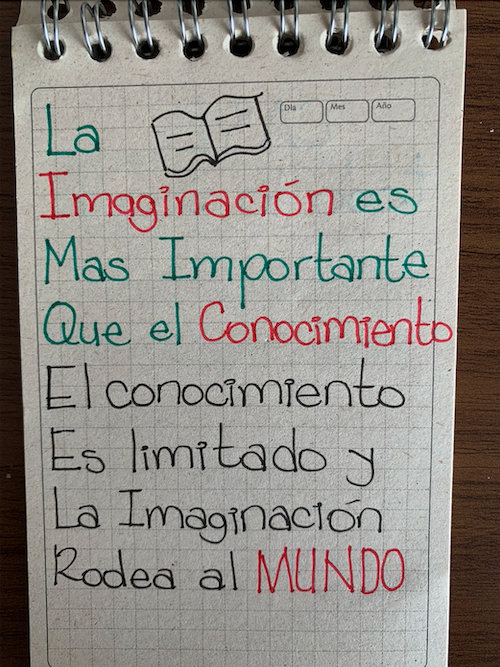 Día Mes Año
La
Imaginación es
Mas Importante
Que el Conocimiento
El conocimiento
Es limitado y
La Imaginación
Rodea al MUNDO